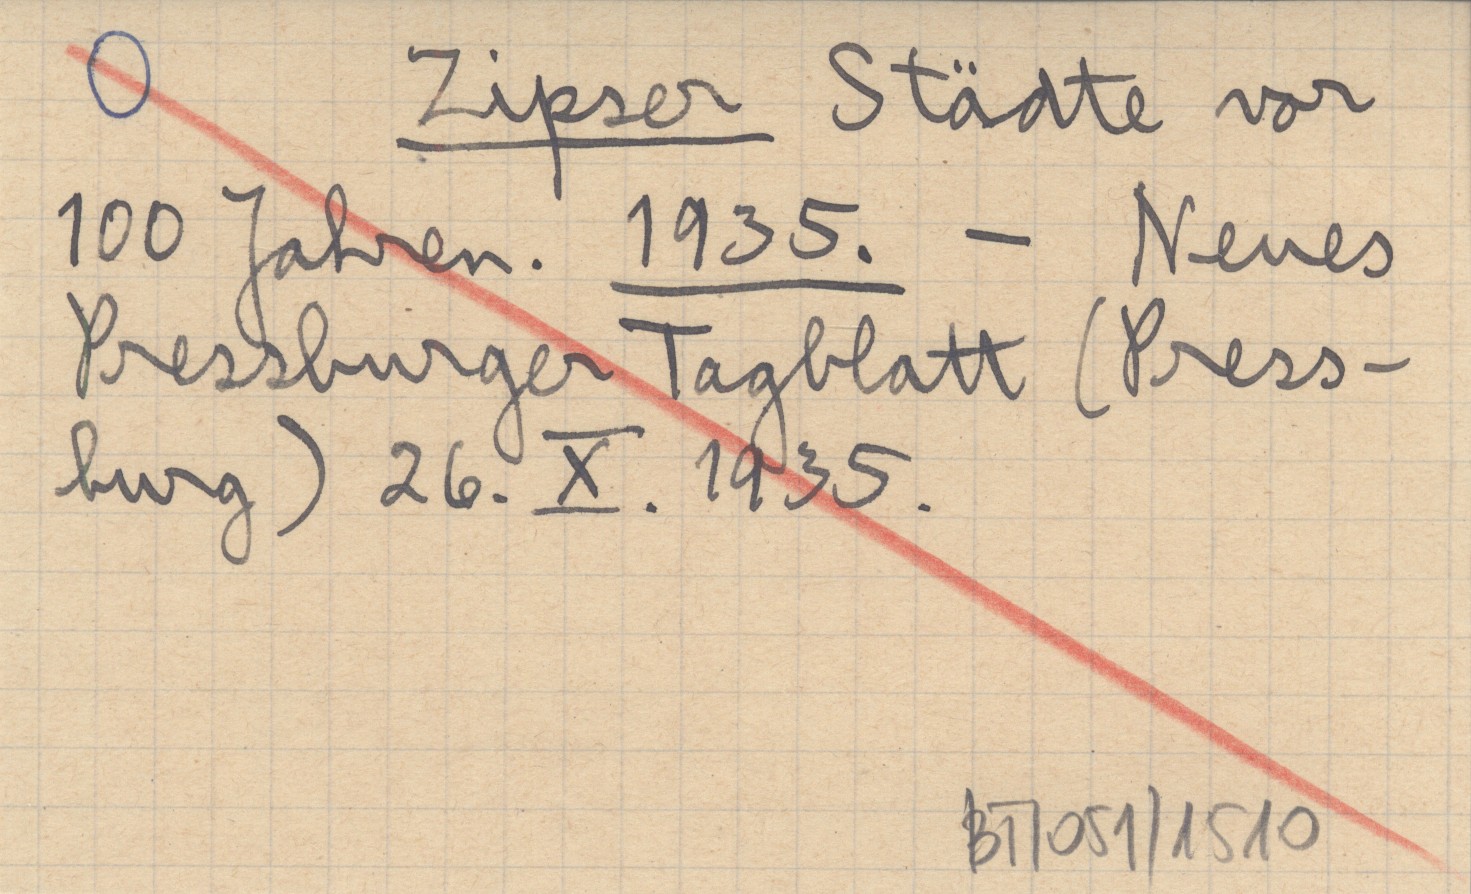 Zipser Städte vor
100 Jahren. 1935. – Neues
Pressburger Tagblatt (Press-
burg) 26. X. 1935.
BT/051/1510